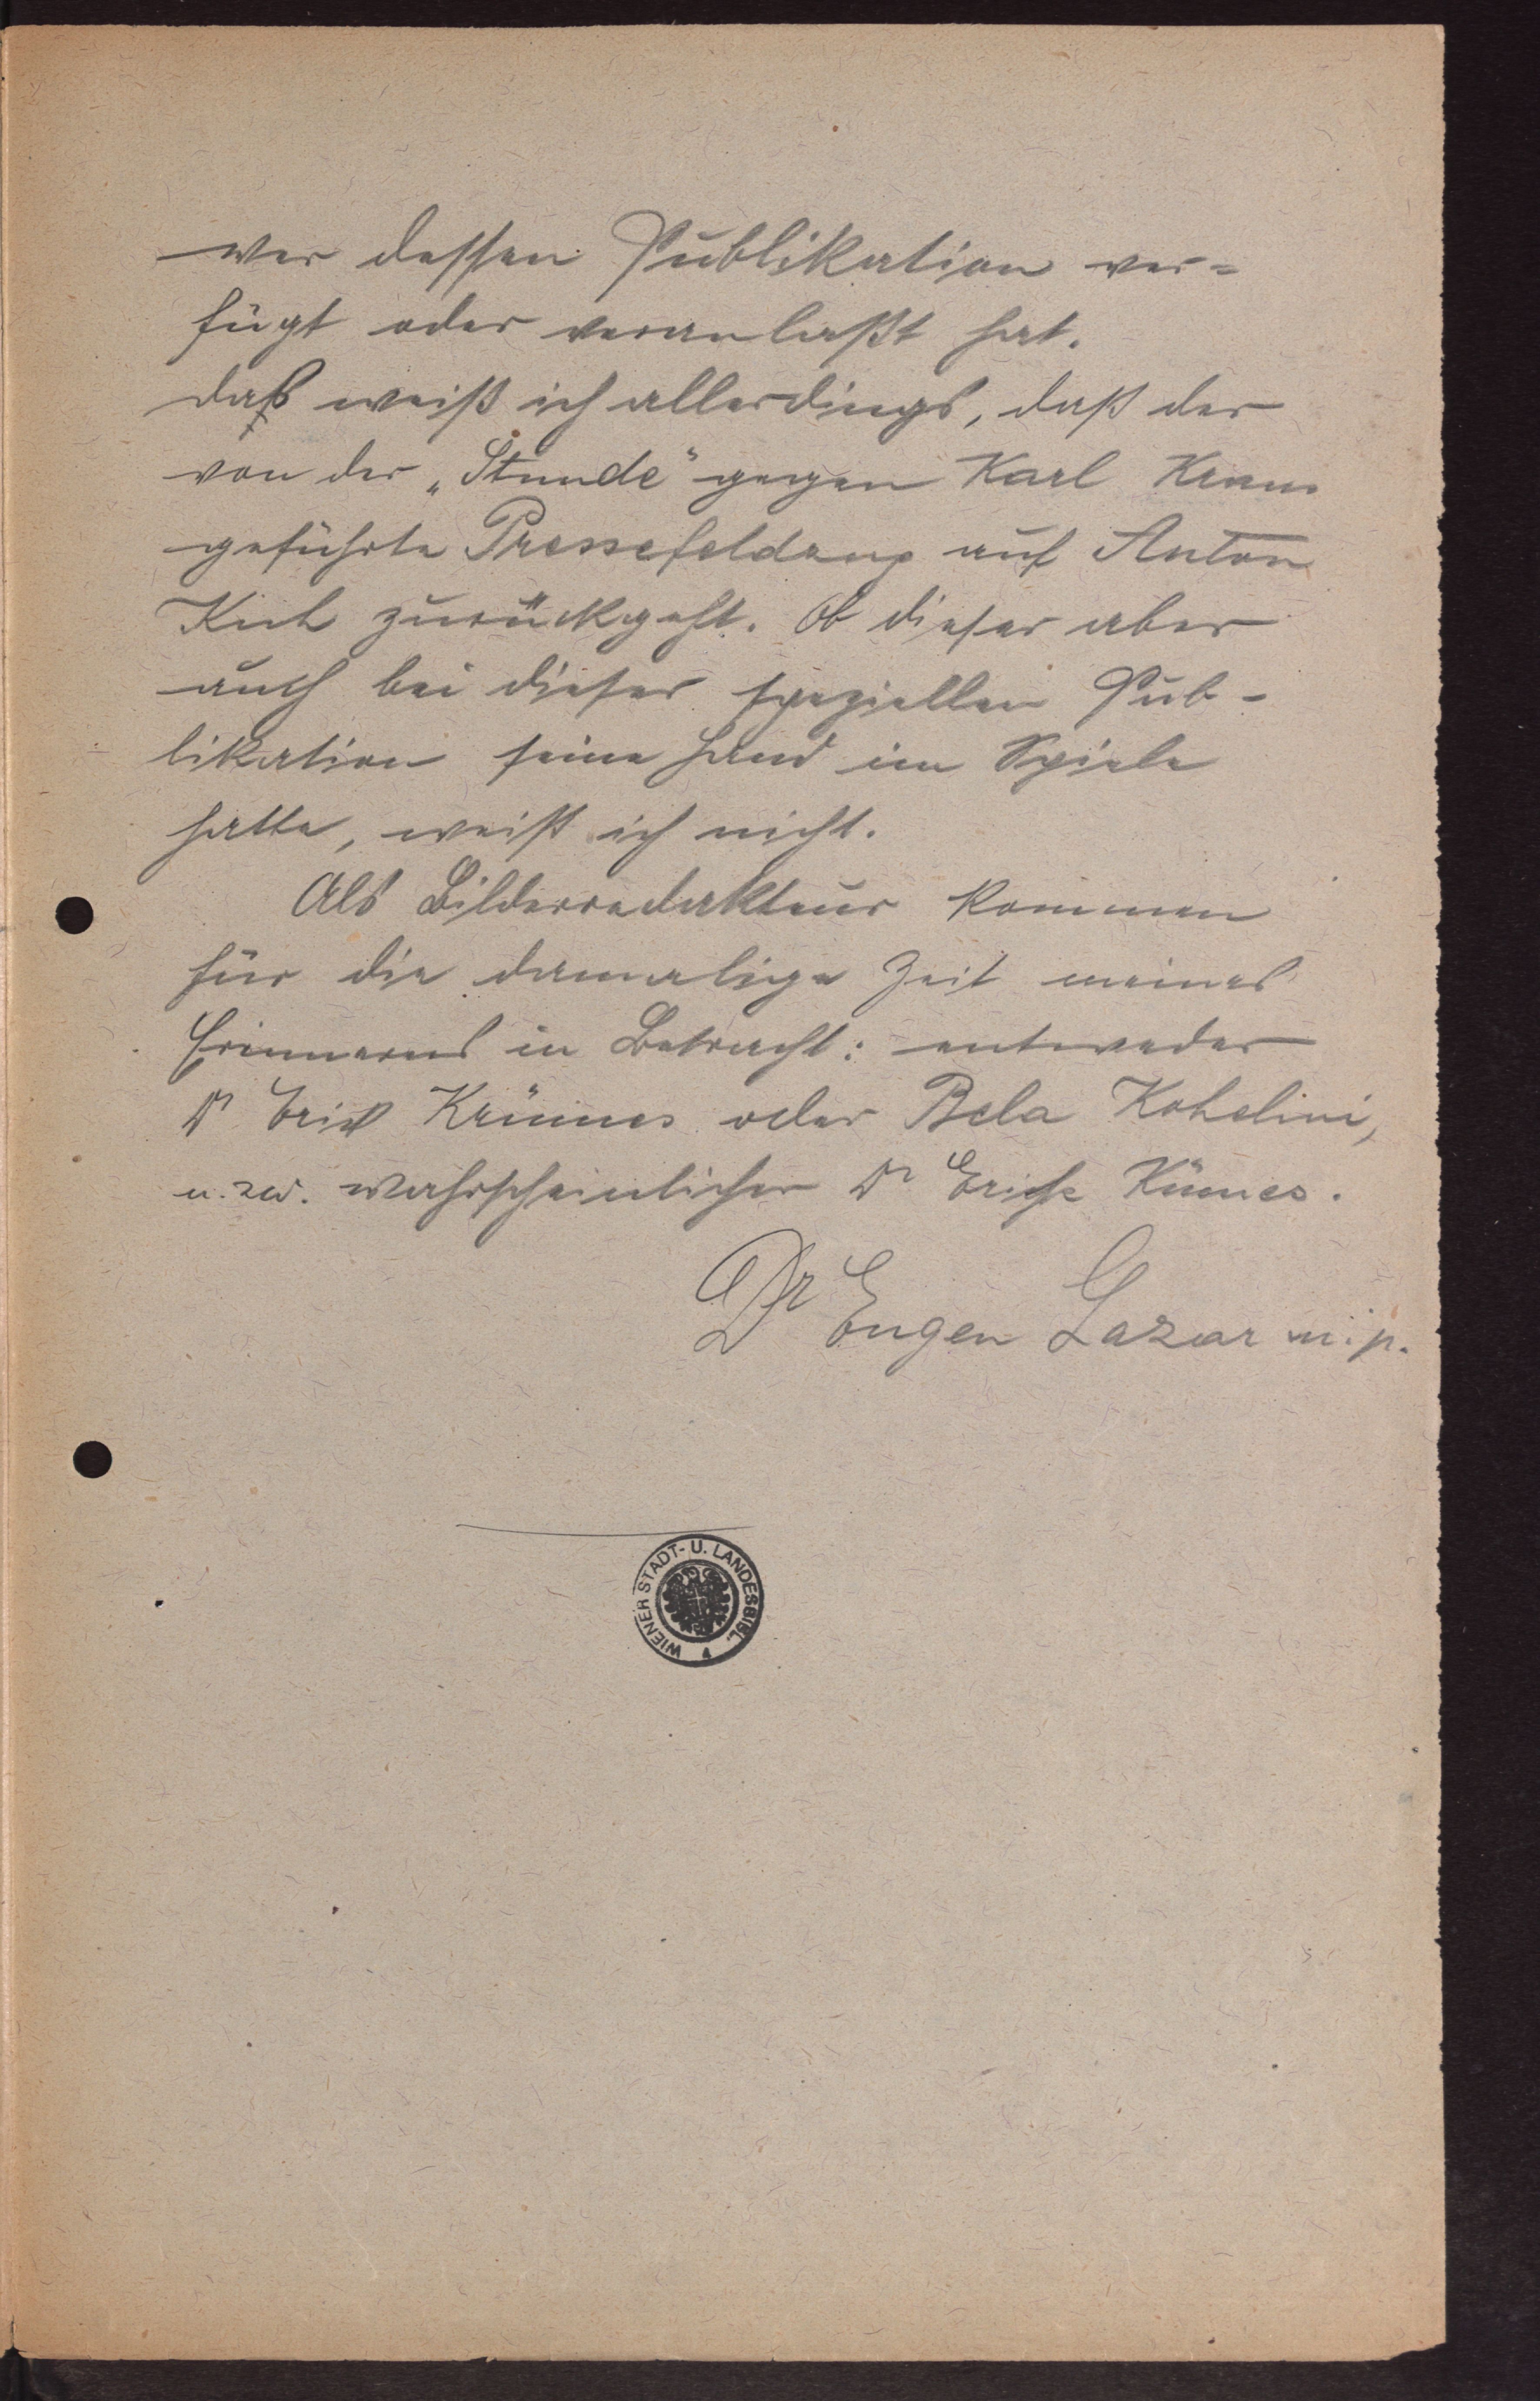 wer dessen Publikation ver=
fügt oder veranlaßt hat.
das weiß ich allerdings, daß der
von der „Stunde" gegen Karl Kraus
geführte Pressefeldzug auf Anton
Kuh zurückgeht. Ob dieser aber
auch bei dieser speziellen Pub-
likation seine Hand im Spiele
hatte, weiß ich nicht.
Als Bilderredakteur kommen
für die damalige Zeit meines
Erinnerns in Betracht: entweder
Dr Erich Krünes oder Bela Kohelini,
u. zw. wahrscheinlicher Dr Erich Künes.
Dr Eugen Lazar m. p.
WIENER STADT- U. LANDESBIBL.